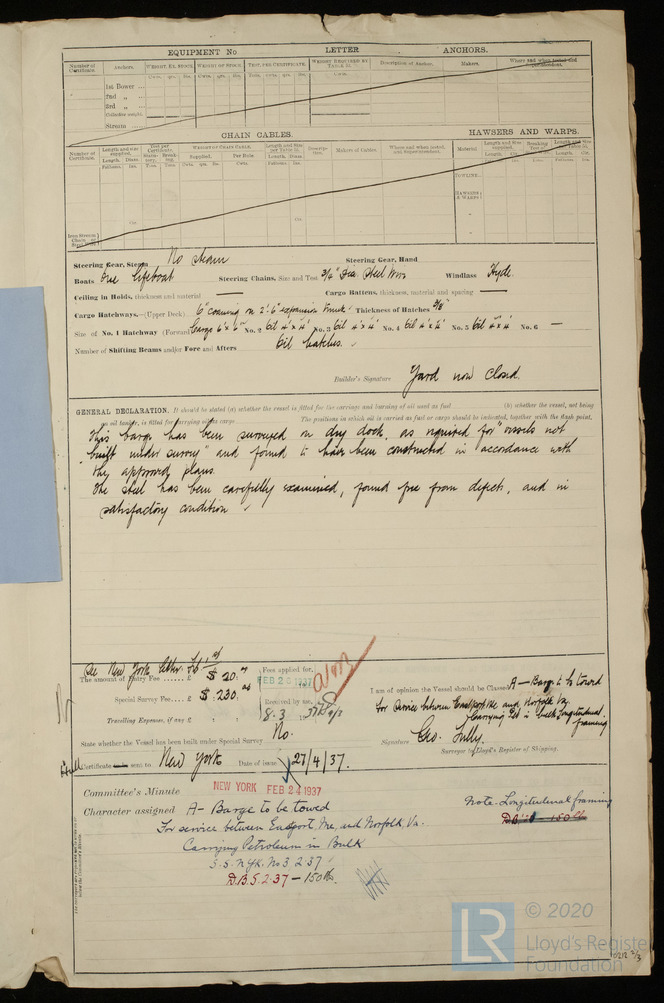 EQUIPMENT No LETTER ANCHORS.
Number of Certificate. Anchors. WEIGHT, EX. STOCK. WEIGHT OF STOCK. TEST, PER CERTIFICATE. WEIGHT REQUIRED BY TABLE 22. Description of Anchor. Makers. Where and when tested and Superintendent.
1st Bower ...
2nd „ ...
3rd „ ...
Collective weight.
Stream ...
CHAIN CABLES. HAWSERS AND WARPS.
Number of Certificate. Length and size supplied. Test per Certificate. WEIGHT OF CHAIN CABLE. Length and Size per Table 22. Description. Makers of Cables. Where and when tested, and Superintendent. Material. Length and Size supplied. Breaking Test of Length and Size
TOWLINE
HAWSERS & WARPS
Steering Gear, Steam No steam Steering Gear, Hand
Boats One lifeboat Steering Chains, Size and Test 3/4" Dia. Steel Wire Windlass Hyde.
Ceiling in Holds, thickness and material — Cargo Battens, thickness, material and spacing —
Cargo Hatchways.—(Upper Deck) 6" coaming on 2'-6" expansion trunk. Thickness of Hatches 3/8"
Size of No. 1 Hatchway (Forward) Cargo 6' x 6' No. 2 Oil 4' x 4' No. 3 Oil 4' x 4' No. 4 Oil 4' x 4' No. 5 Oil 4' x 4' No. 6 —
Number of Shifting Beams and/or Fore and Afters Oil hatches.
Builder's Signature Yard now Closed
GENERAL DECLARATION. It should be stated (a) whether the vessel is fitted for the carriage and burning of oil used as fuel (b) whether the vessel, not being
an oil tanker, is fitted for carrying oil as cargo The positions in which oil is carried as fuel or cargo should be indicated, together with the flash point.
This barge has been surveyed on dry dock, as required for "vessels not
built under survey" and found to have been constructed in accordance with
the approved plans.
The steel has been carefully examined, found free from defects, and in
satisfactory condition
See New York letter
The amount of Entry Fee ...... £ $ 20.
Fees applied for,
FEB 26 1937
Special Survey Fee .... £ $ 230.
Received by me,
8.3
Travelling Expenses, if any £
I am of opinion the Vessel should be Classed A — Barge to be towed
for service between Eastport Me and Norfolk Va.
Carrying Pet in bulk Longitudinal
framing
State whether the Vessel has been built under Special Survey No.
Signature Geo. Tully.
Surveyor to Lloyd's Register of Shipping.
Certificate sent to New York Date of issue 27/4/37.
Committee's Minute NEW YORK FEB 24 1937
Character assigned A- Barge to be towed
For service between Eastport Me, and Norfolk, Va.
Carrying Petroleum in Bulk
S.S. N.Yk. No 3 2.37
D.B.S. 2.37 — 150 lb.
Note. Longitudinal framing
© 2020
LR
Lloyd's Register
Foundation